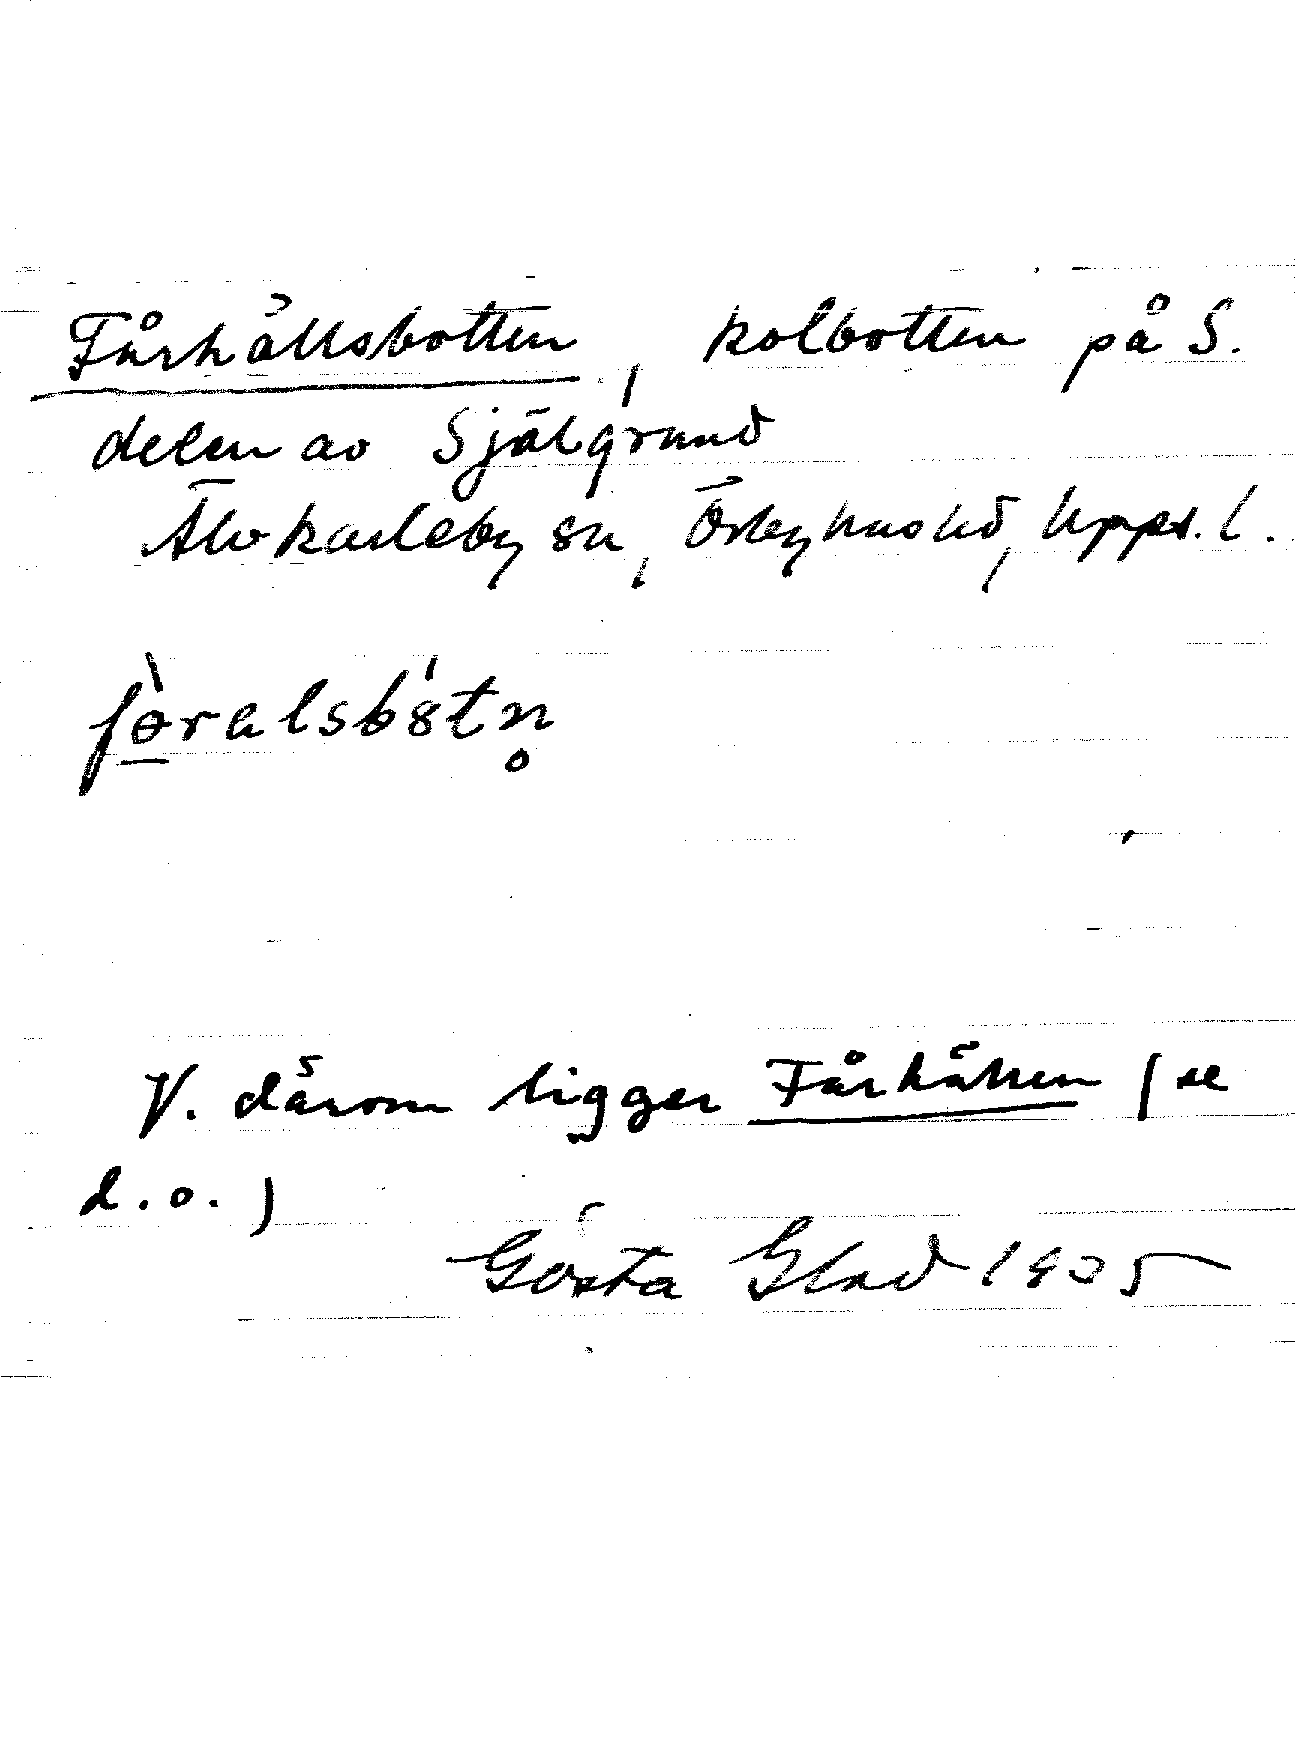 Fårhällsbotten, kolbotten på S.
delen av Själgrund
Älvkarleby sn, Örbyhus hd, Upps. l.
fòralsbótn̥
V. därom ligger Fårhällen (se
d.o.)
Gösta Glad 1935